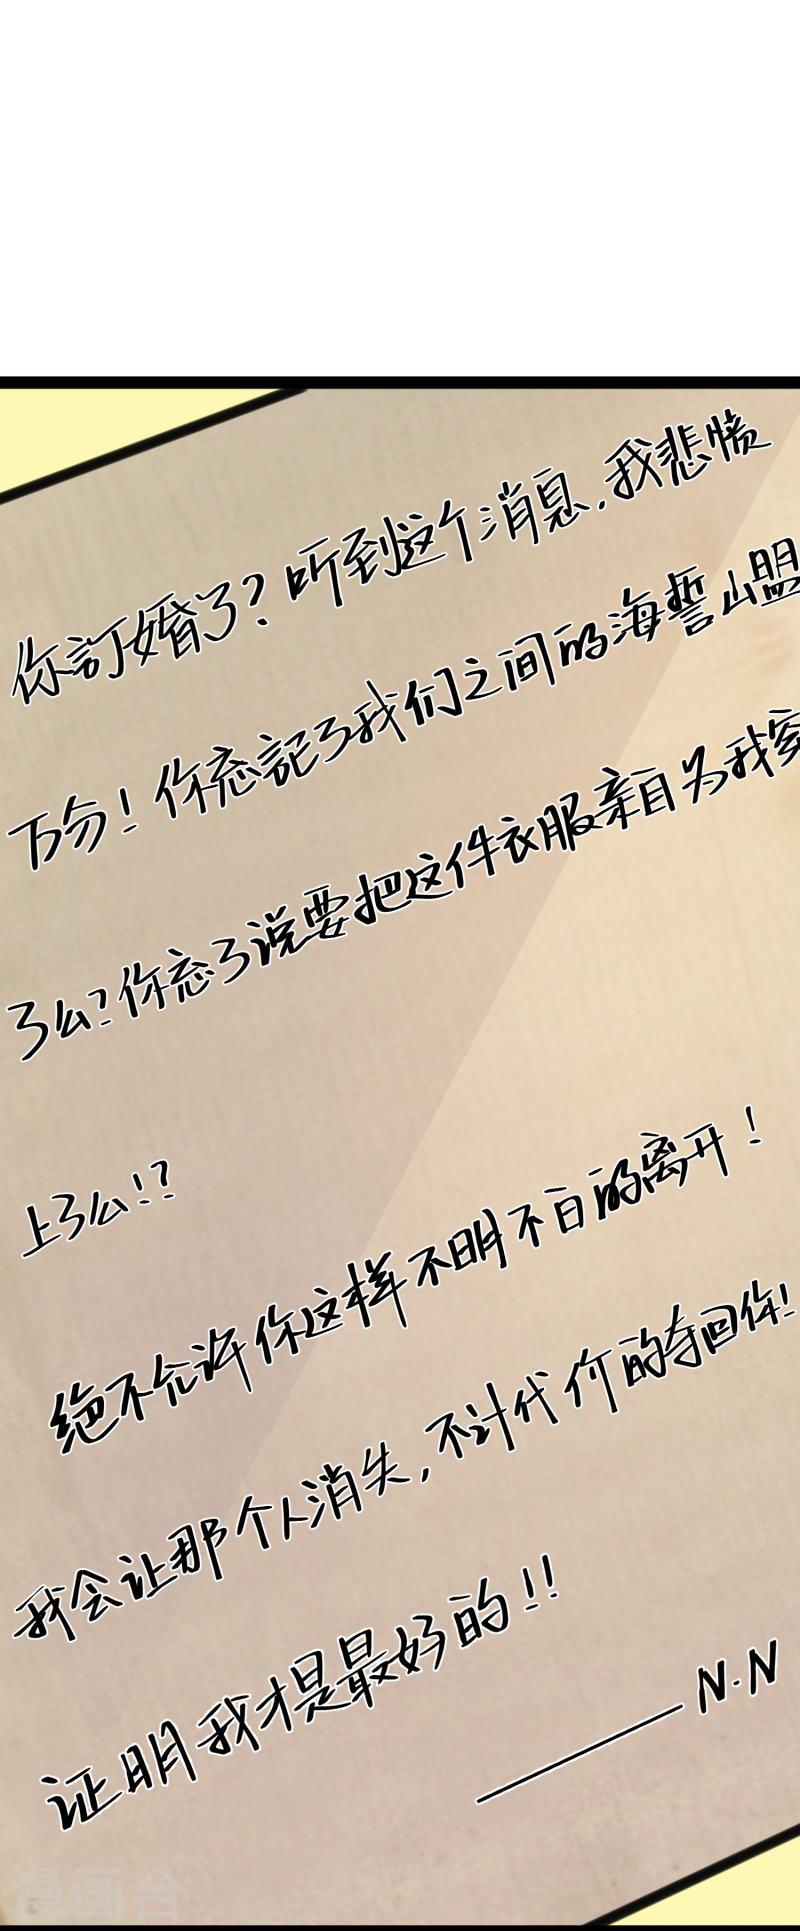 你訂婚了?听到这个消息,我悲愤
万分!你忘記了我们之间的海誓山盟
了么?你忘了说要把这件衣服亲自为我穿
上了么!?
绝不允许你这样不明不白的离开!
我会让那个人消失,不计代价的夺回你!
证明我才是最好的!!
——N·N
漫画台